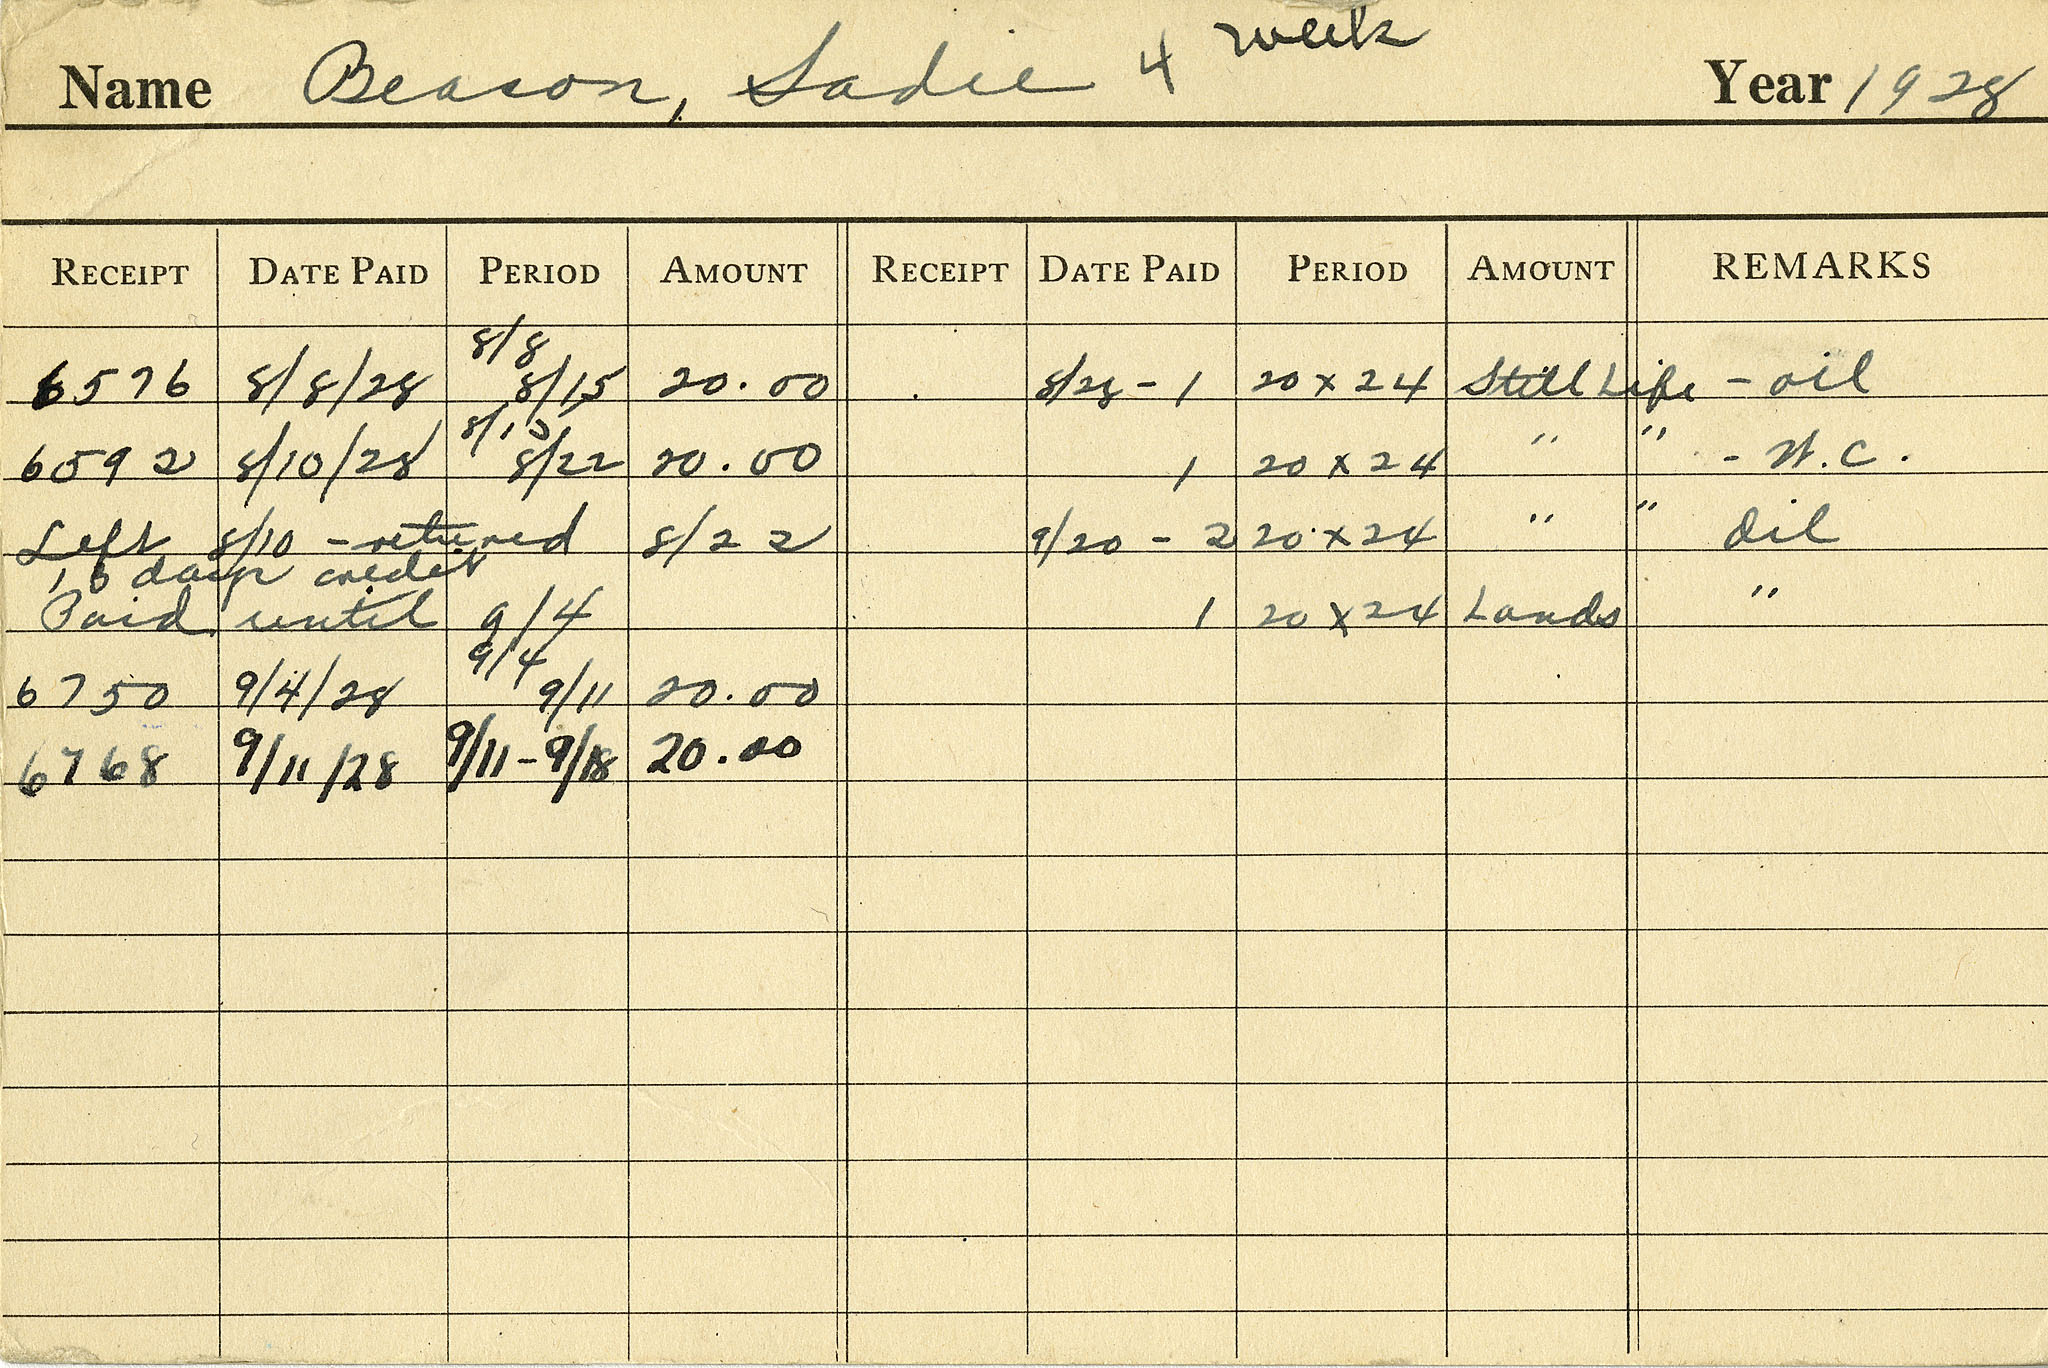 Name Beason, Sadie 4 week Year 1928
RECEIPT DATE PAID PERIOD AMOUNT RECEIPT DATE PAID PERIOD AMOUNT REMARKS
8/8
6576 8/8/28 8/15 20.00 8/28 - 1 20 x 24 Still Life - oil
8/15
6592 8/10/28 8/22 20.00 1 20 x 24 " " - W.C.
Left 8/10 - returned 8/22 9/20 - 2 20 x 24 " " Oil
days credit
Paid until 9/4 1 20 x 24 Lands "
9/4
6750 9/4/28 9/11 20.00
6768 9/11/28 9/11-9/18 20.00